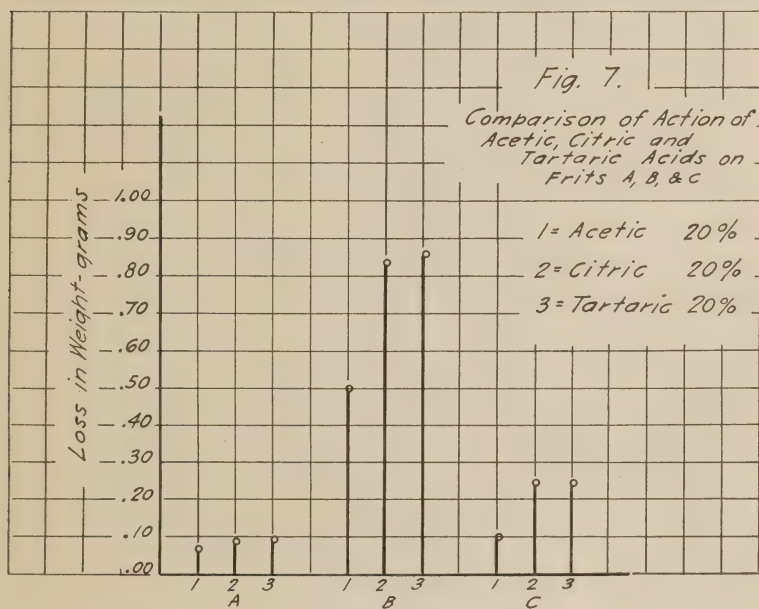 Fig. 7.
Comparison of Action of
Acetic, Citric and
Tartaric Acids on
Frits A, B, & C
1 = Acetic 20%
2 = Citric 20%
3 = Tartaric 20%
Loss in Weight-grams
1.00
.90
.80
.70
.60
.50
.40
.30
.20
.10
.00
1 2 3 1 2 3 1 2 3
A B C